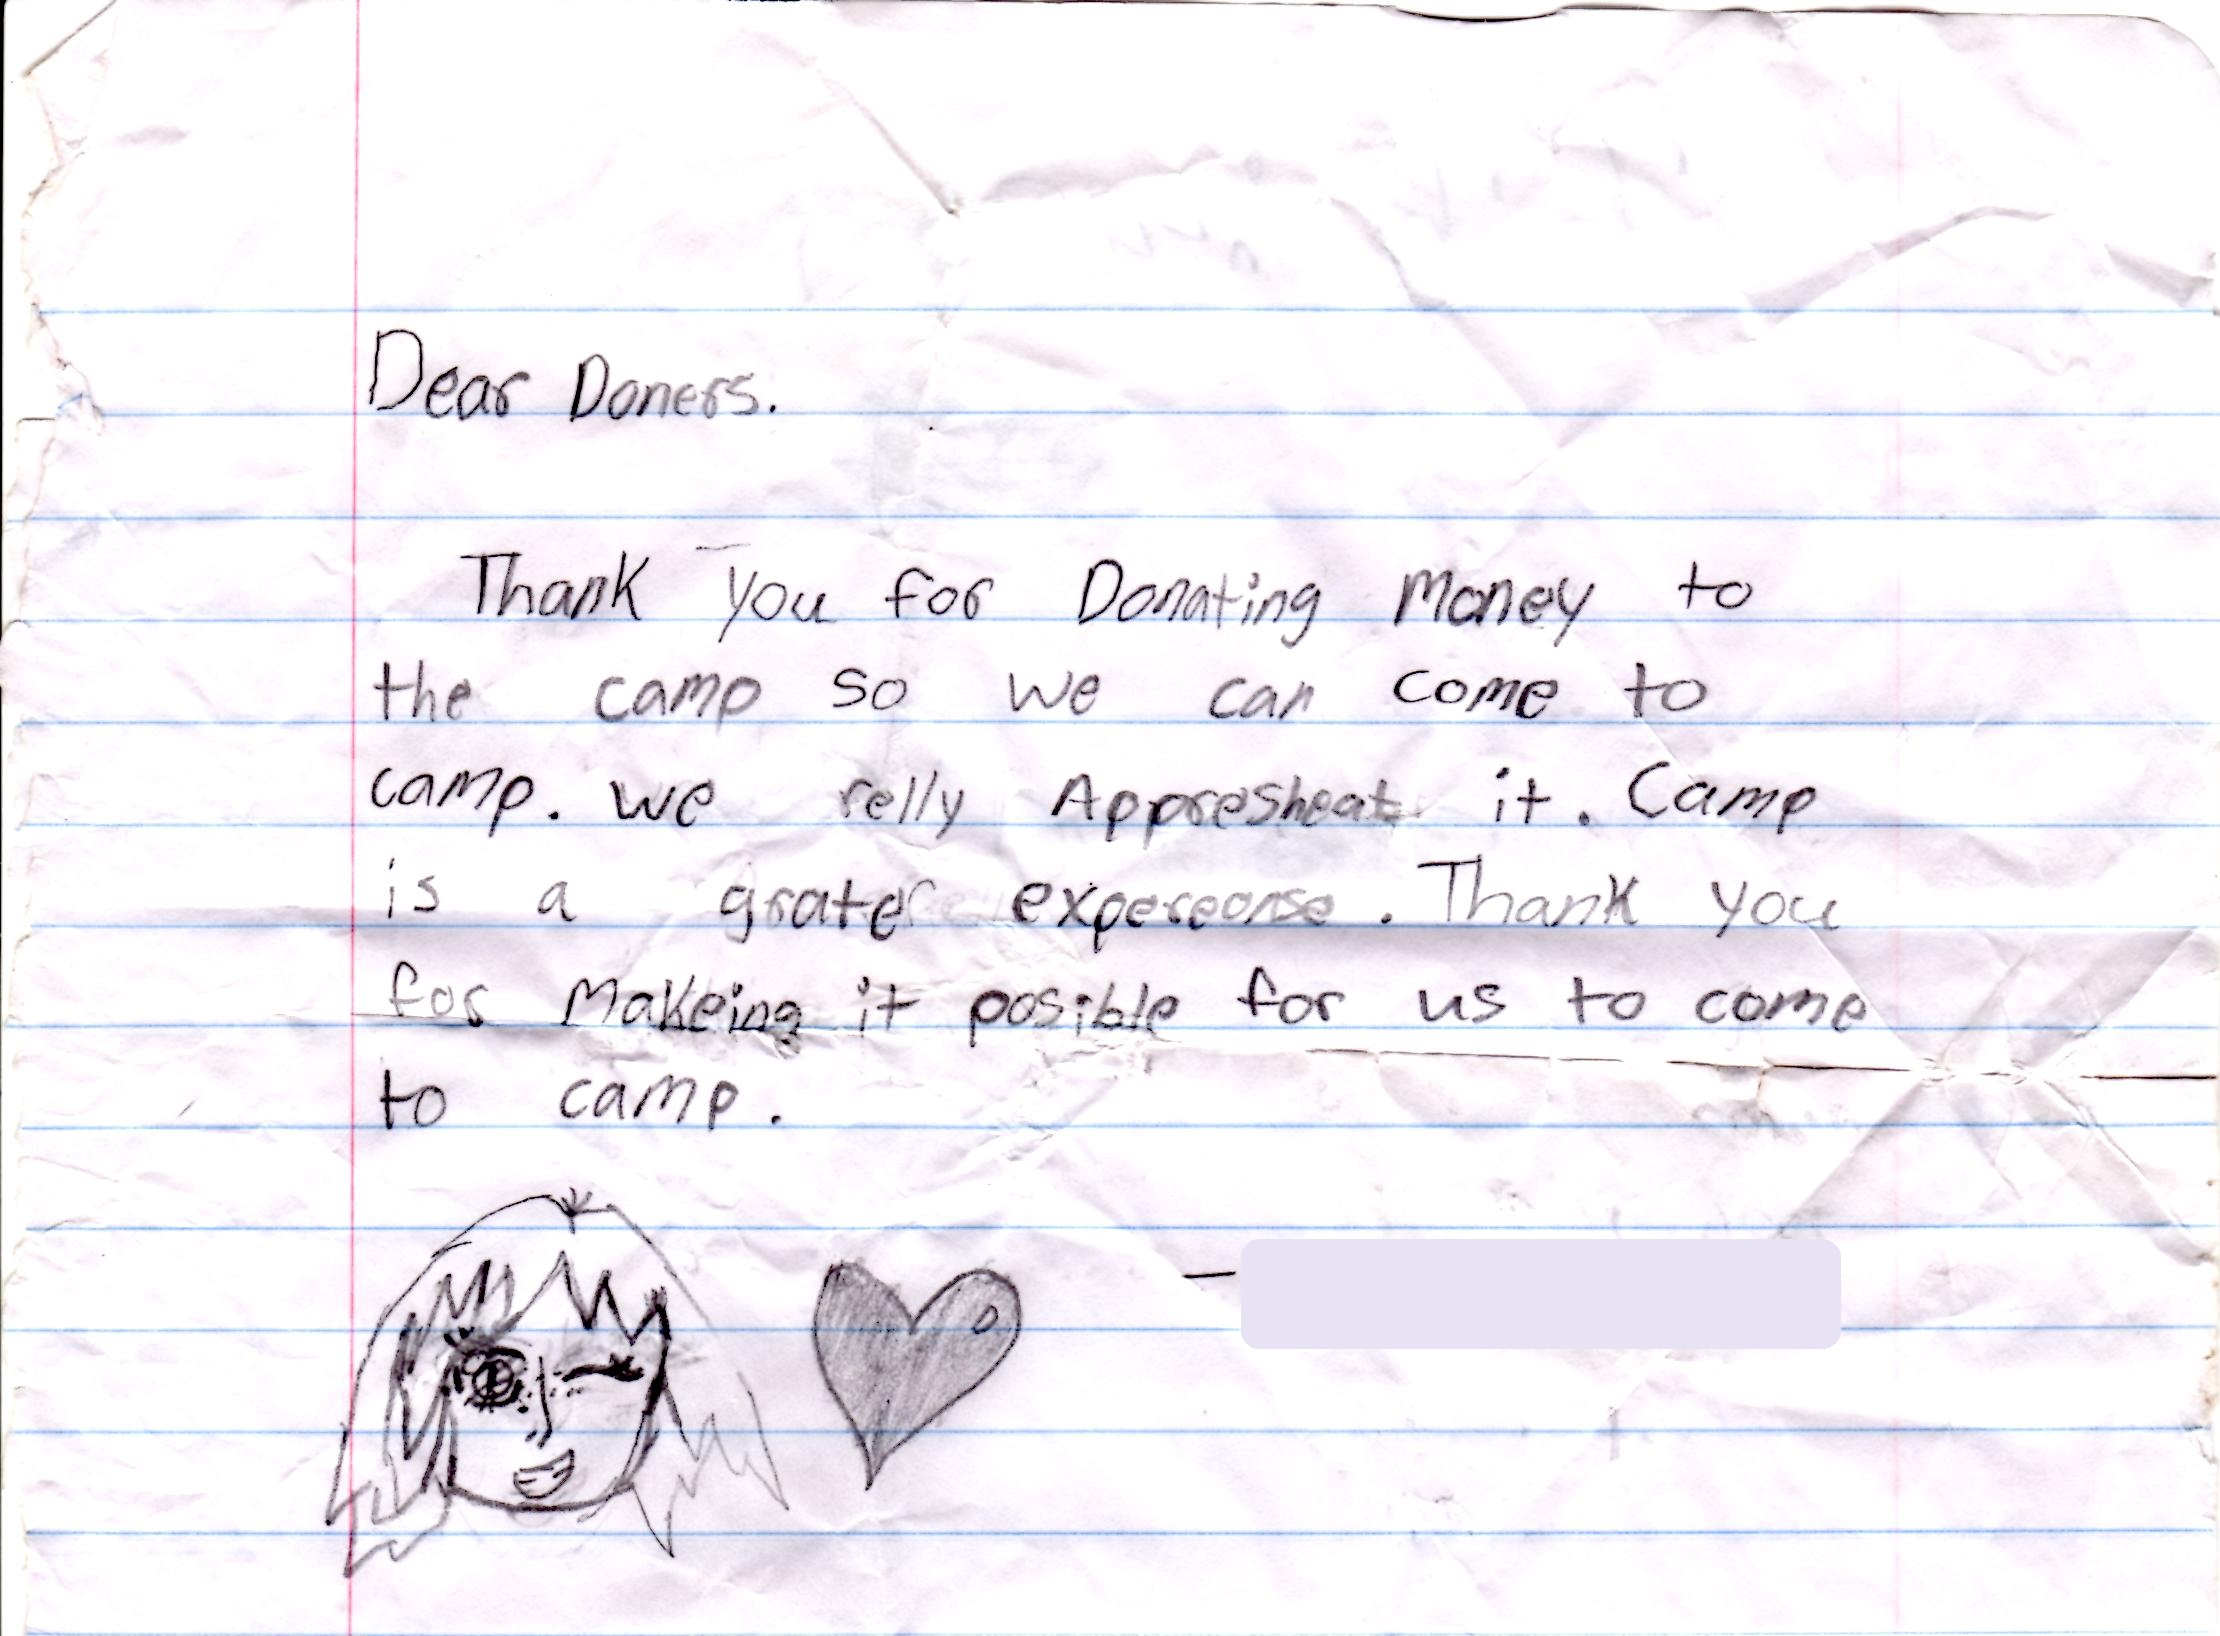 Dear Doners.
Thank you for Donating Money to
the camp so we can come to
camp. we relly Appresheat it. Camp
is a grate expereonse. Thank you
for Makeing it posible for us to come
to camp.